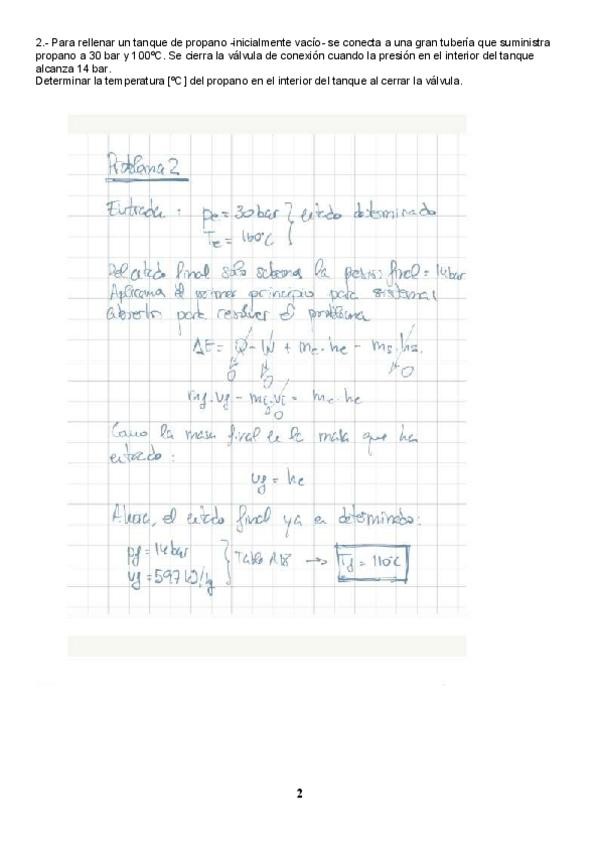 2.- Para rellenar un tanque de propano -inicialmente vacío- se conecta a una gran tubería que suministra
propano a 30 bar y 100ºC. Se cierra la válvula de conexión cuando la presión en el interior del tanque
alcanza 14 bar.
Determinar la temperatura [ºC] del propano en el interior del tanque al cerrar la válvula.
Problema 2
Entrada : Pe = 30 bar } estado determinado
Te = 100°C
Del estado final sólo sabemos la final = 14 bar
Aplicamos el primer principio para sistemas
abiertos para resolver el problema
ΔE = Q - W + me·he - ms·hs
0 0 0
mf·uf - mi·ui = me·he
0
Como la masa final es la masa que ha
entrado :
uf = he
Ahora, el estado final ya es determinado:
pf = 14 bar
uf = 597 kJ/kg } Tabla A18 → Tf = 110°C
2